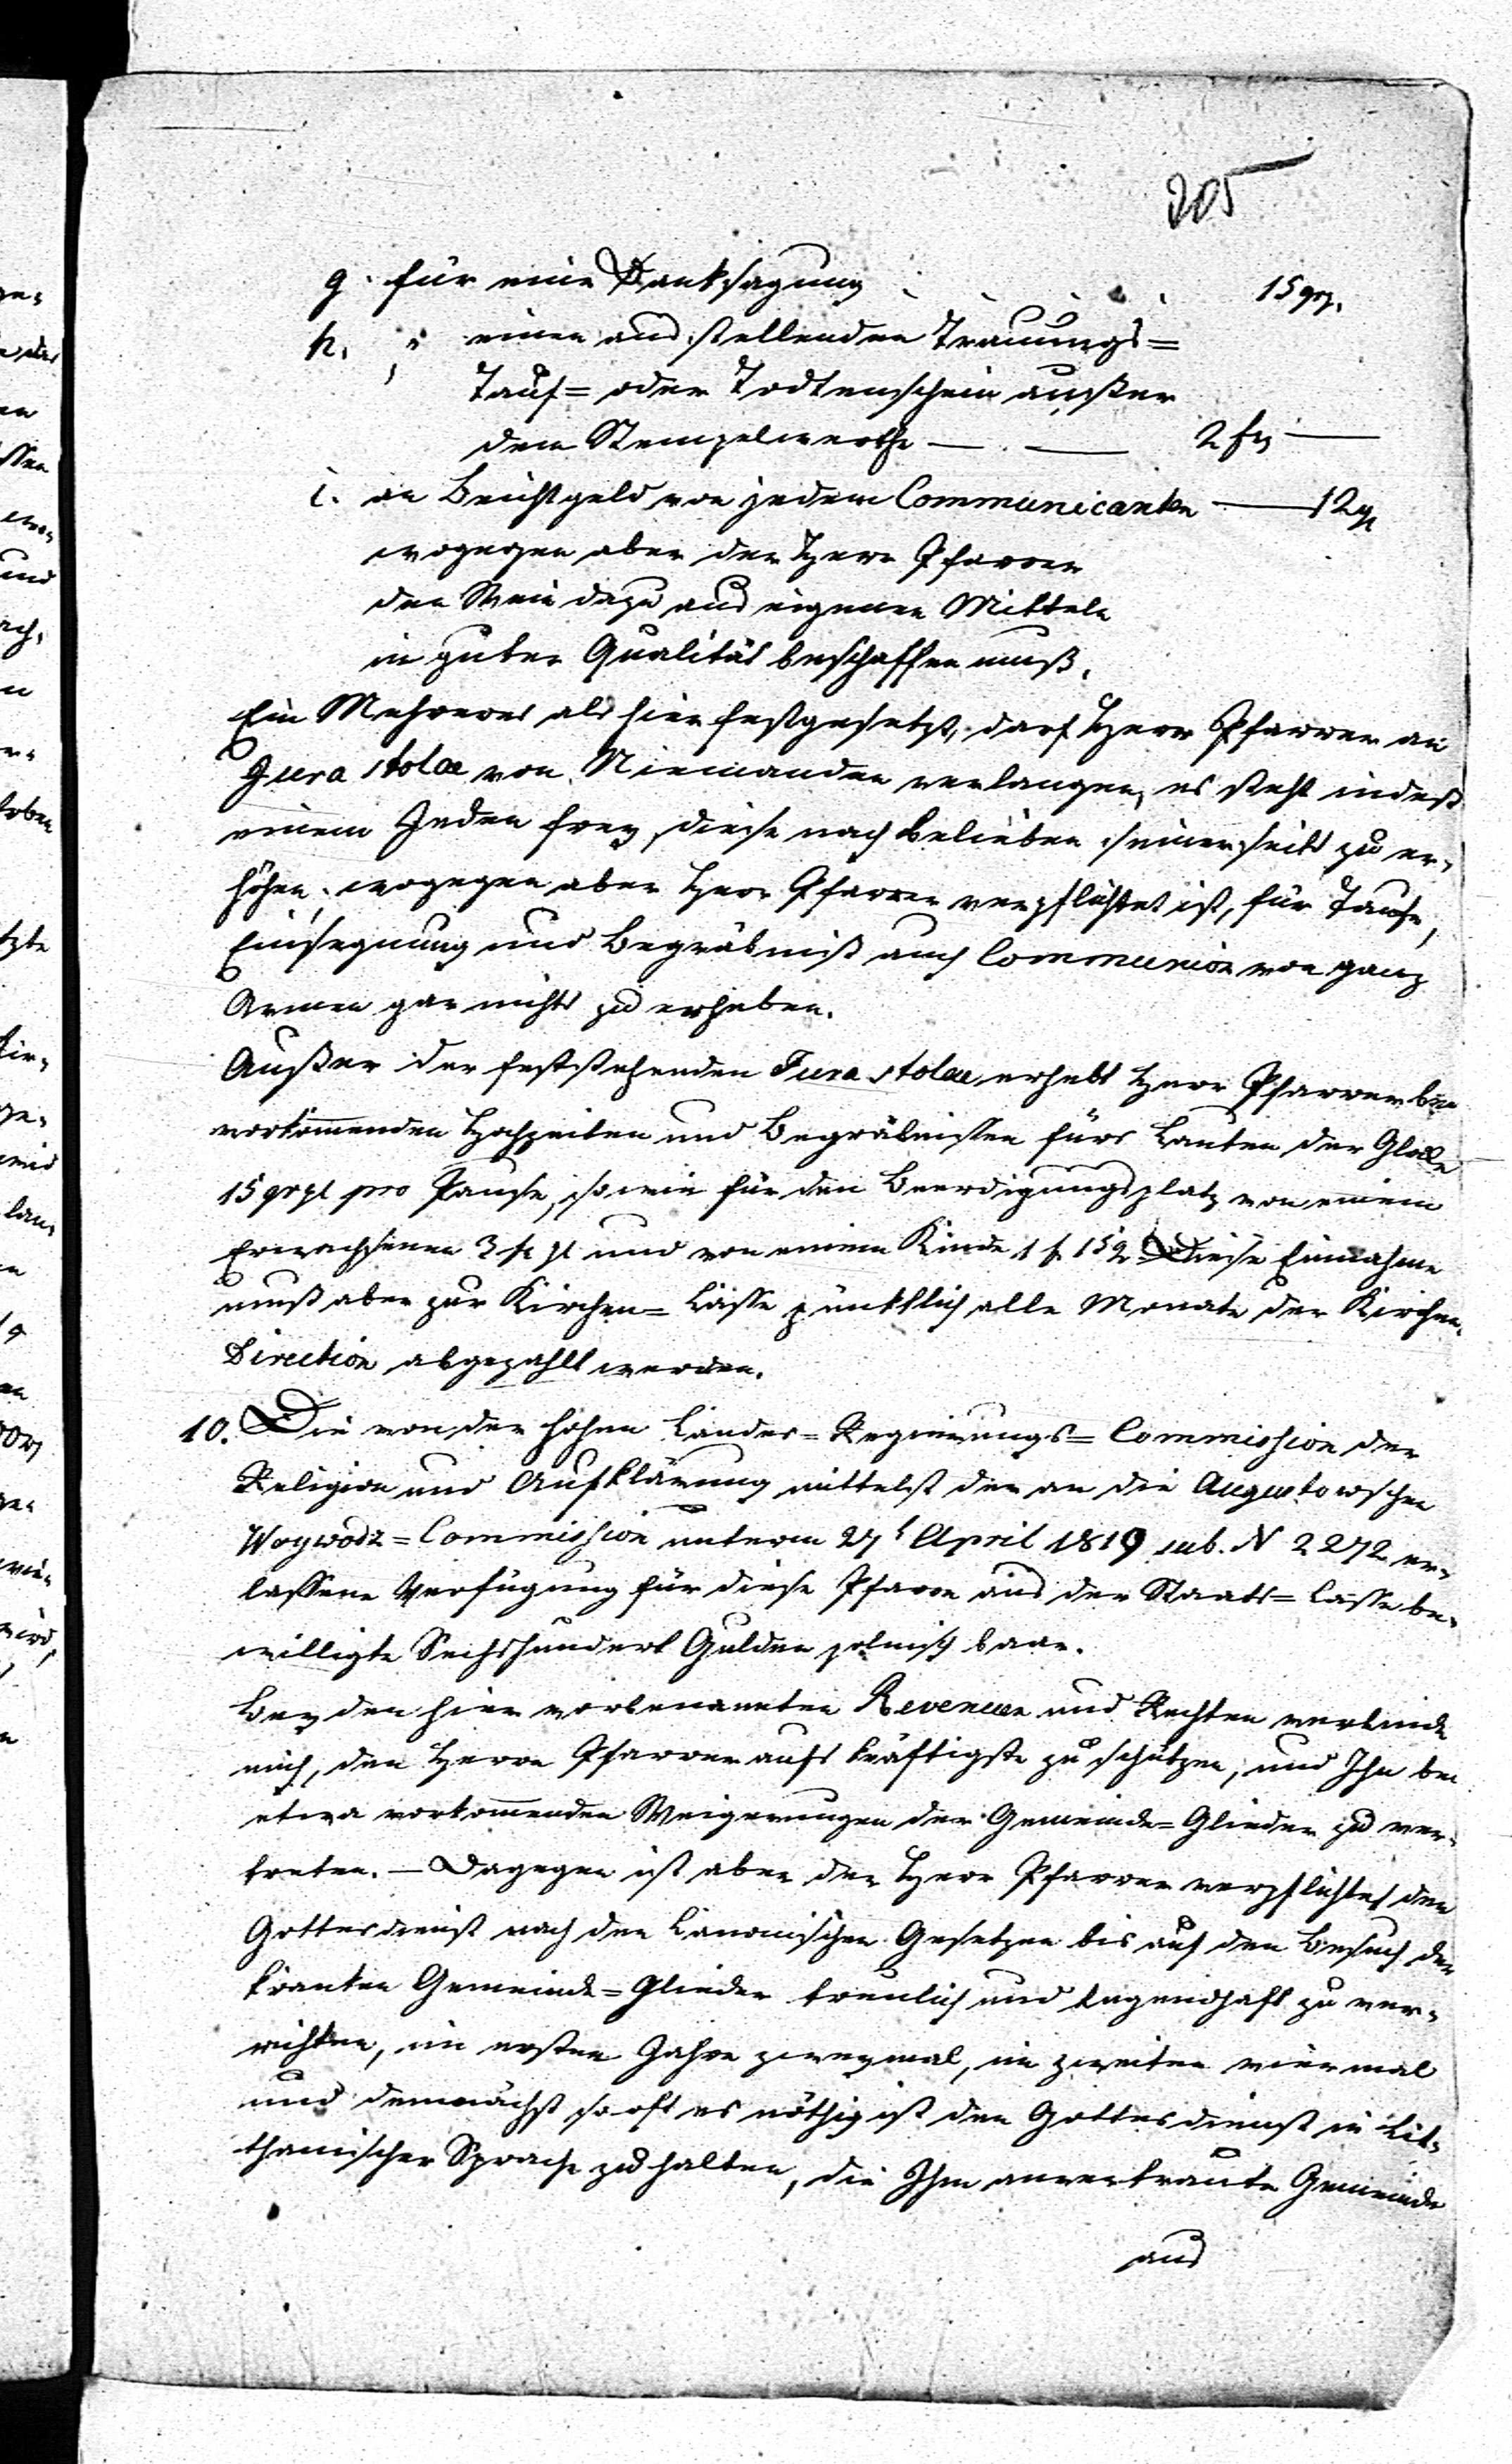 205
g. für eine Danksagung . . . . 15 gr.
h. " einen auszustellenden Trauungs=
Tauf= oder Todtenschein außer
dem Stempelwerthe — . — 2 f —
i. an Beichtgeld von jedem Communicanten — 12 gr
wogegen aber der Herr Pfarrer
den Wein dazu aus eigenen Mitteln
in guter Qualität beschaffen muß.
Ein Mehreres als hier festgesetzt, darf Herr Pfarrer an
Jura stolae von Niemanden verlangen, es steht indeß
einem Jeden frey, diese nach Belieben seinerseits zu er=
höhen, wogegen aber Herr Pfarrer verpflichtet ist, für Taufe,
Einsegnung und Begräbniß auch Communion von ganz
Armen gar nichts zu erheben.
Außer der feststehenden Jura stolae erhebt Herr Pfarrer bei
vorkommenden Hochzeiten und Begräbnissen fürs Lauten der Glocke
15 gr pl pro Pause, sowie für den Beerdigungsplatz von einem
Erwachsenen 3 f pl und von einem Kinde 1 f 15 g. Diese Einnahme
muß aber zur Kirchen=Casse pünktlich alle Monate der Kirchen=
Direction abgezahlt werden.
10. Die von der hohen Landes=Regierungs=Commission der
Religion und Aufklärung mittelst der an die Augustowschen
Woywodz=Commission unterm 27t April 1819 sub. N 2272 er=
lassene Verfügung für diese Pfarre aus der Staats=Casse be=
willigte Sechshundert Gulden polnisch baar.
Bey den hier vorbenannten Revenuen und Rechten verbinde
mich, den Herrn Pfarrer aufs kräftigste zu schützen, und Ihn bei
etwa vorkommenden Weigerungen der Gemeinde=Glieder zu ver=
treten. — Dagegen ist aber der Herr Pfarrer verpflichtet den
Gottesdienst nach den Canonischen Gesetzen bis auf den Besuch der
kranken Gemeinde=Glieder treulich und tugendhaft zu ver=
richten, im ersten Jahre zweymal, im zweiten viermal
und demnächst so oft es nöthig ist den Gottesdienst in Lit=
thauischer Sprache zu halten, die Ihm anvertraute Gemeinde
aus